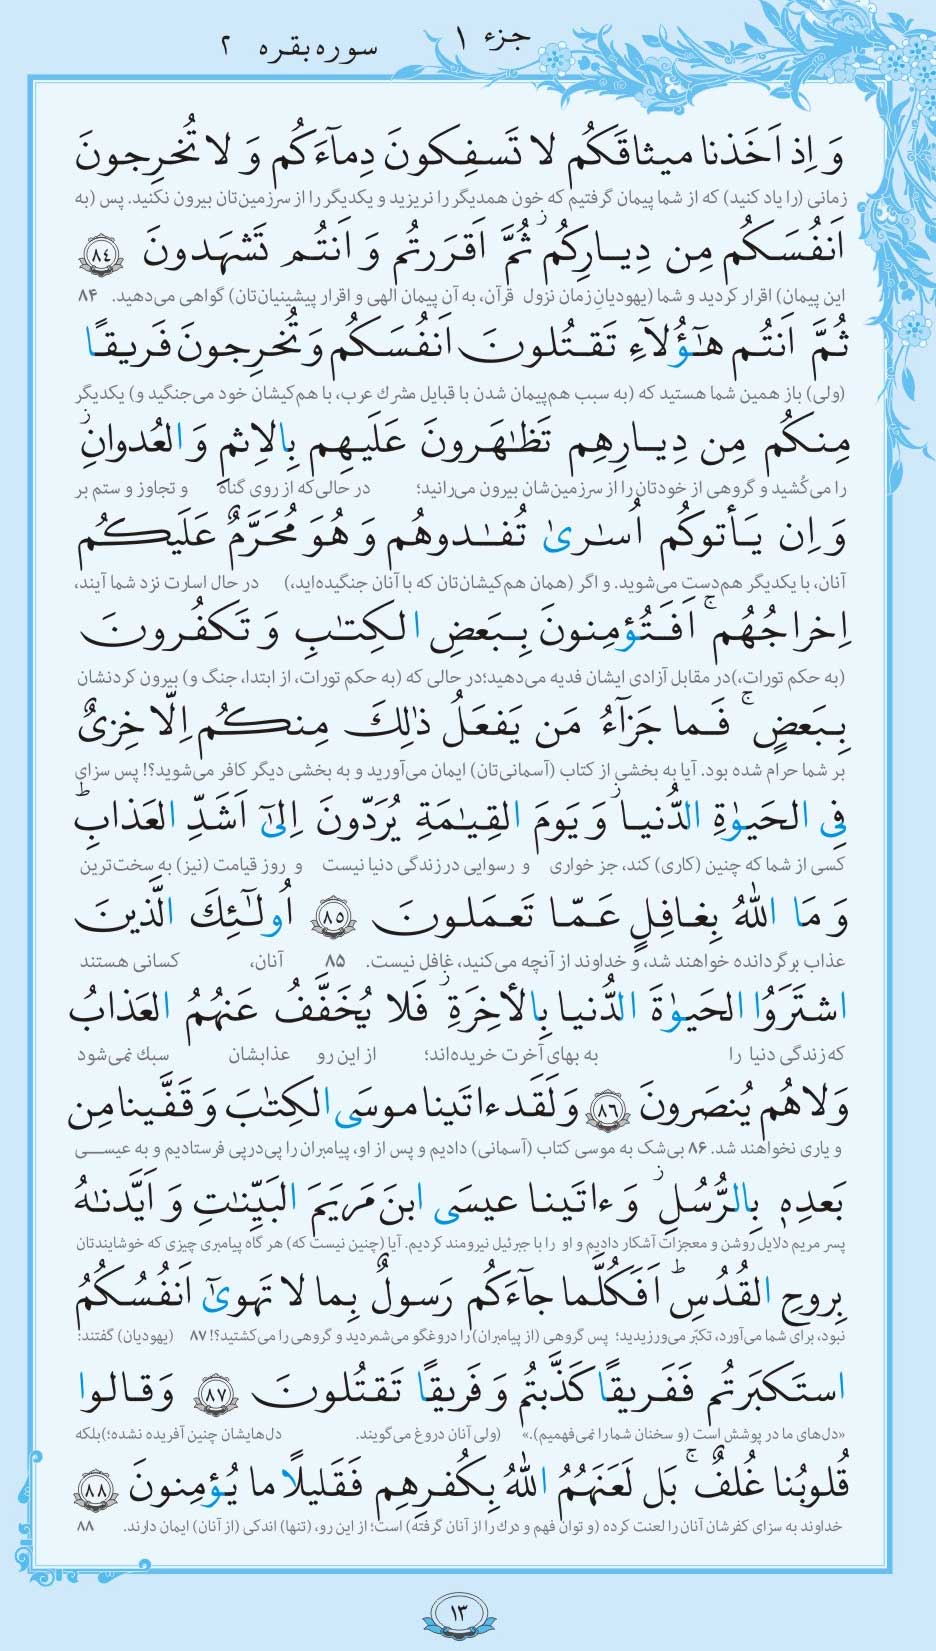 جزء ۱ سوره بقره ۲
وَ اِذ اَخَذنا میثاقَکُم لا تَسفِکونَ دِمآءَکُم وَ لا تُخرِجونَ
زمانی (را یاد کنید) که از شما پیمان گرفتیم که خون همدیگر را نریزید و یکدیگر را از سرزمین‌تان بیرون نکنید. پس (به
اَنفُسَکُم مِن دِیارِکُم ثُمَّ اَقرَرتُم وَ اَنتُم تَشهَدونَ ۸۴
این پیمان) اقرار کردید و شما (یهودیانِ زمان نزول قرآن، به آن پیمان الهی و اقرار پیشینیان‌تان) گواهی می‌دهید. ۸۴
ثُمَّ اَنتُم هٰٓؤُلآءِ تَقتُلونَ اَنفُسَکُم وَ تُخرِجونَ فَریقًا
(ولی) باز همین شما هستید که (به سبب هم‌پیمان شدن با قبایل مشرك عرب، با هم‌کیشان خود می‌جنگید و) یکدیگر
مِنکُم مِن دِیارِهِم تَظٰهَرونَ عَلَیهِم بِالاِثمِ وَ العُدوانِ
را می‌کُشید و گروهی از خودتان را از سرزمین‌شان بیرون می‌رانید؛ در حالی‌که از روی گناه و تجاوز و ستم بر
وَ اِن یَأتوکُم اُسٰریٰ تُفٰدوهُم وَ هُوَ مُحَرَّمٌ عَلَیکُم
آنان، با یکدیگر هم‌دست می‌شوید. و اگر (همان هم‌کیشان‌تان که با آنان جنگیده‌اید،) در حال اسارت نزد شما آیند،
اِخراجُهُم ۚ اَفَتُؤمِنونَ بِبَعضِ الکِتٰبِ وَ تَکفُرونَ
(به حکم تورات،) در مقابل آزادی ایشان فدیه می‌دهید؛ در حالی که (به حکم تورات، از ابتدا، جنگ و) بیرون کردنشان
بِبَعضٍ ۚ فَما جَزآءُ مَن یَفعَلُ ذٰلِكَ مِنکُم اِلّا خِزیٌ
بر شما حرام شده بود. آیا به بخشی از کتاب (آسمانی‌تان) ایمان می‌آورید و به بخشی دیگر کافر می‌شوید؟! پس سزای
فِی الحَیوٰةِ الدُّنیا وَ یَومَ القِیٰمَةِ یُرَدّونَ اِلیٰٓ اَشَدِّ العَذابِ ؕ
کسی از شما که چنین (کاری) کند، جز خواری و رسوایی در زندگی دنیا نیست و روز قیامت (نیز) به سخت‌ترین
وَ مَا اللّٰهُ بِغافِلٍ عَمّا تَعمَلونَ ۸۵ اُولٰٓئِكَ الَّذینَ
عذاب برگردانده خواهند شد، و خداوند از آنچه می‌کنید، غافل نیست. ۸۵ آنان، کسانی هستند
اشتَرَوُا الحَیوٰةَ الدُّنیا بِالأخِرَةِ فَلا یُخَفَّفُ عَنهُمُ العَذابُ
که زندگی دنیا را به بهای آخرت خریده‌اند؛ از این رو عذابشان سبك نمی‌شود
وَلاهُم یُنصَرونَ ۸۶ وَلَقَد ءاتَینا موسَی الکِتٰبَ وَ قَفَّینا مِن
و یاری نخواهند شد. ۸۶ بی‌شک به موسی کتاب (آسمانی) دادیم و پس از او، پیامبران را پی‌درپی فرستادیم و به عیسی
بَعدِهٖ بِالرُّسُلِ وَ ءاتَینا عیسَی ابنَ مَریَمَ البَیِّنٰتِ وَ اَیَّدنٰهُ
پسر مریم دلایل روشن و معجزات آشکار دادیم و او را با جبرئیل نیرومند کردیم. آیا (چنین نیست که) هر گاه پیامبری چیزی که خوشایندتان
بِروحِ القُدُسِ ؕ اَفَکُلَّما جآءَکُم رَسولٌ بِما لا تَهویٰٓ اَنفُسُکُمُ
نبود، برای شما می‌آورد، تکبّر می‌ورزیدید؛ پس گروهی (از پیامبران) را دروغگو می‌شمردید و گروهی را می‌کشتید؟! ۸۷ (یهودیان) گفتند:
استَکبَرتُم فَفَریقًا کَذَّبتُم وَ فَریقًا تَقتُلونَ ۸۷ وَقالوا
«دل‌های ما در پوشش است (و سخنان شما را نمی‌فهمیم).» (ولی آنان دروغ می‌گویند. دل‌هایشان چنین آفریده نشده؛) بلکه
قُلوبُنا غُلفٌ ۚ بَل لَعَنَهُمُ اللّٰهُ بِکُفرِهِم فَقَلیلًا ما یُؤمِنونَ ۸۸
خداوند به سزای کفرشان آنان را لعنت کرده (و توان فهم و درك را از آنان گرفته) است؛ از این رو، (تنها) اندکی (از آنان) ایمان دارند. ۸۸
۱۳